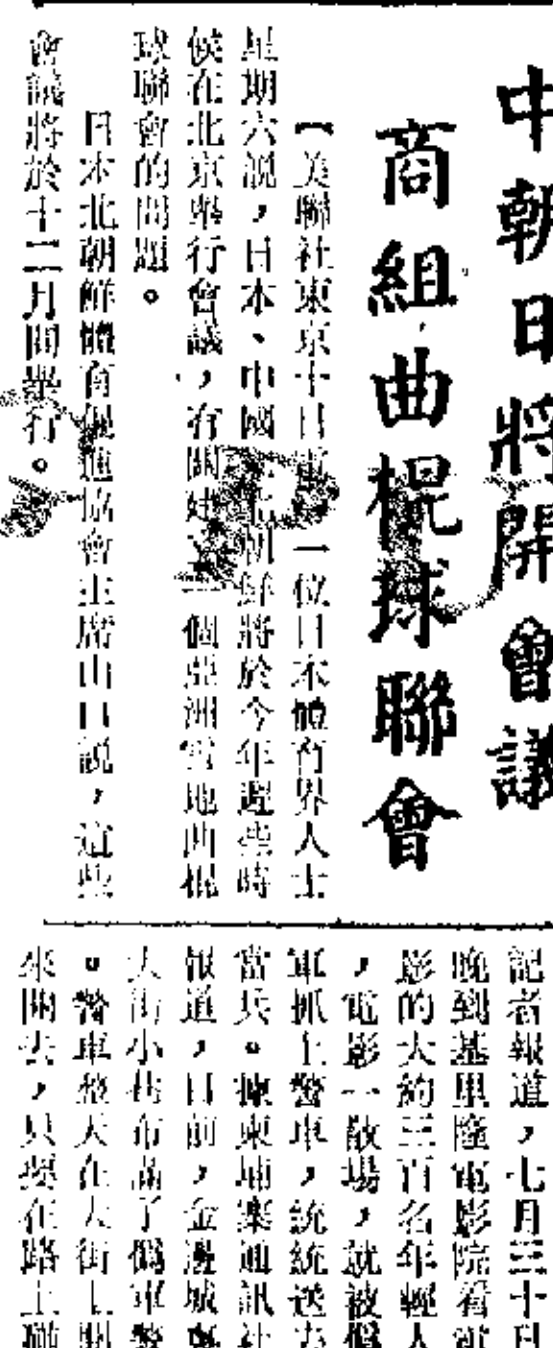 中朝日將開會議
商組曲棍球聯會
【美聯社東京十日電】一位日本體育界人士
星期六說，日本、中國、北朝鮮將於今年遲些時
候在北京舉行會議，有關建立一個亞洲雪地曲棍
球聯會的問題。
日本北朝鮮體育促進協會主席山口說，這些
會議將於十二月間舉行。
記者報道，七月三十日
晚到基里隆電影院看電
影的大約三百名年輕人
，電影一散場，就被偽
軍抓上警車，統統送去
當兵。據柬埔寨通訊社
報道，目前，金邊城
大街小巷布滿了偽軍警
。警車整天在大街上開
來開去，只要在路上碰